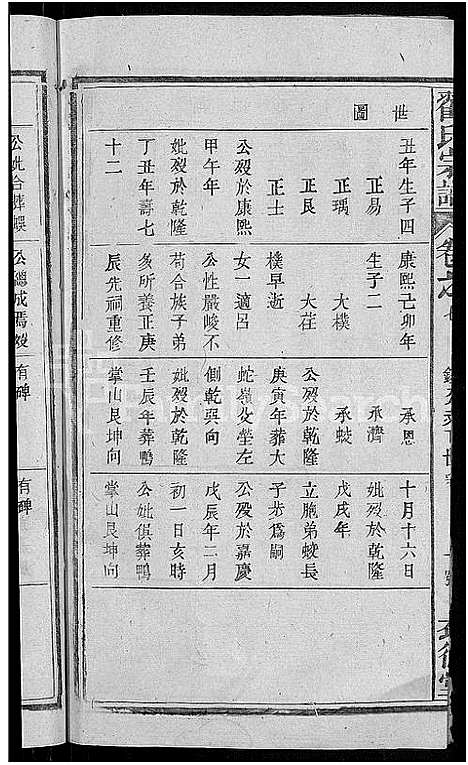 世圖
丑年生子四
正易
正瑀
正艮
正士
公歿於康熙
甲午年
妣歿於乾隆
丁丑年壽七
十二
康熙己卯年
生子二
大樸
大荏
樸早逝
女一適呂
公性嚴峻不
苟合族子弟
多所養正庚
辰先祠重修
承恩
承濟
承蛟
公歿於乾隆
庚寅年葬大
蛇嶺伩塋左
側乾巽向
妣歿於乾隆
壬辰年葬鴨
掌山艮坤向
十月十六日
妣歿於乾隆
戊戌年
立胞弟蛟長
子步爲嗣
公歿於嘉慶
戊辰年二月
初一日亥時
公妣俱葬鴨
掌山艮坤向
公妣合葬
公總成焉歿
有碑
有碑
氏宗譜
卷之七
FamilySearch